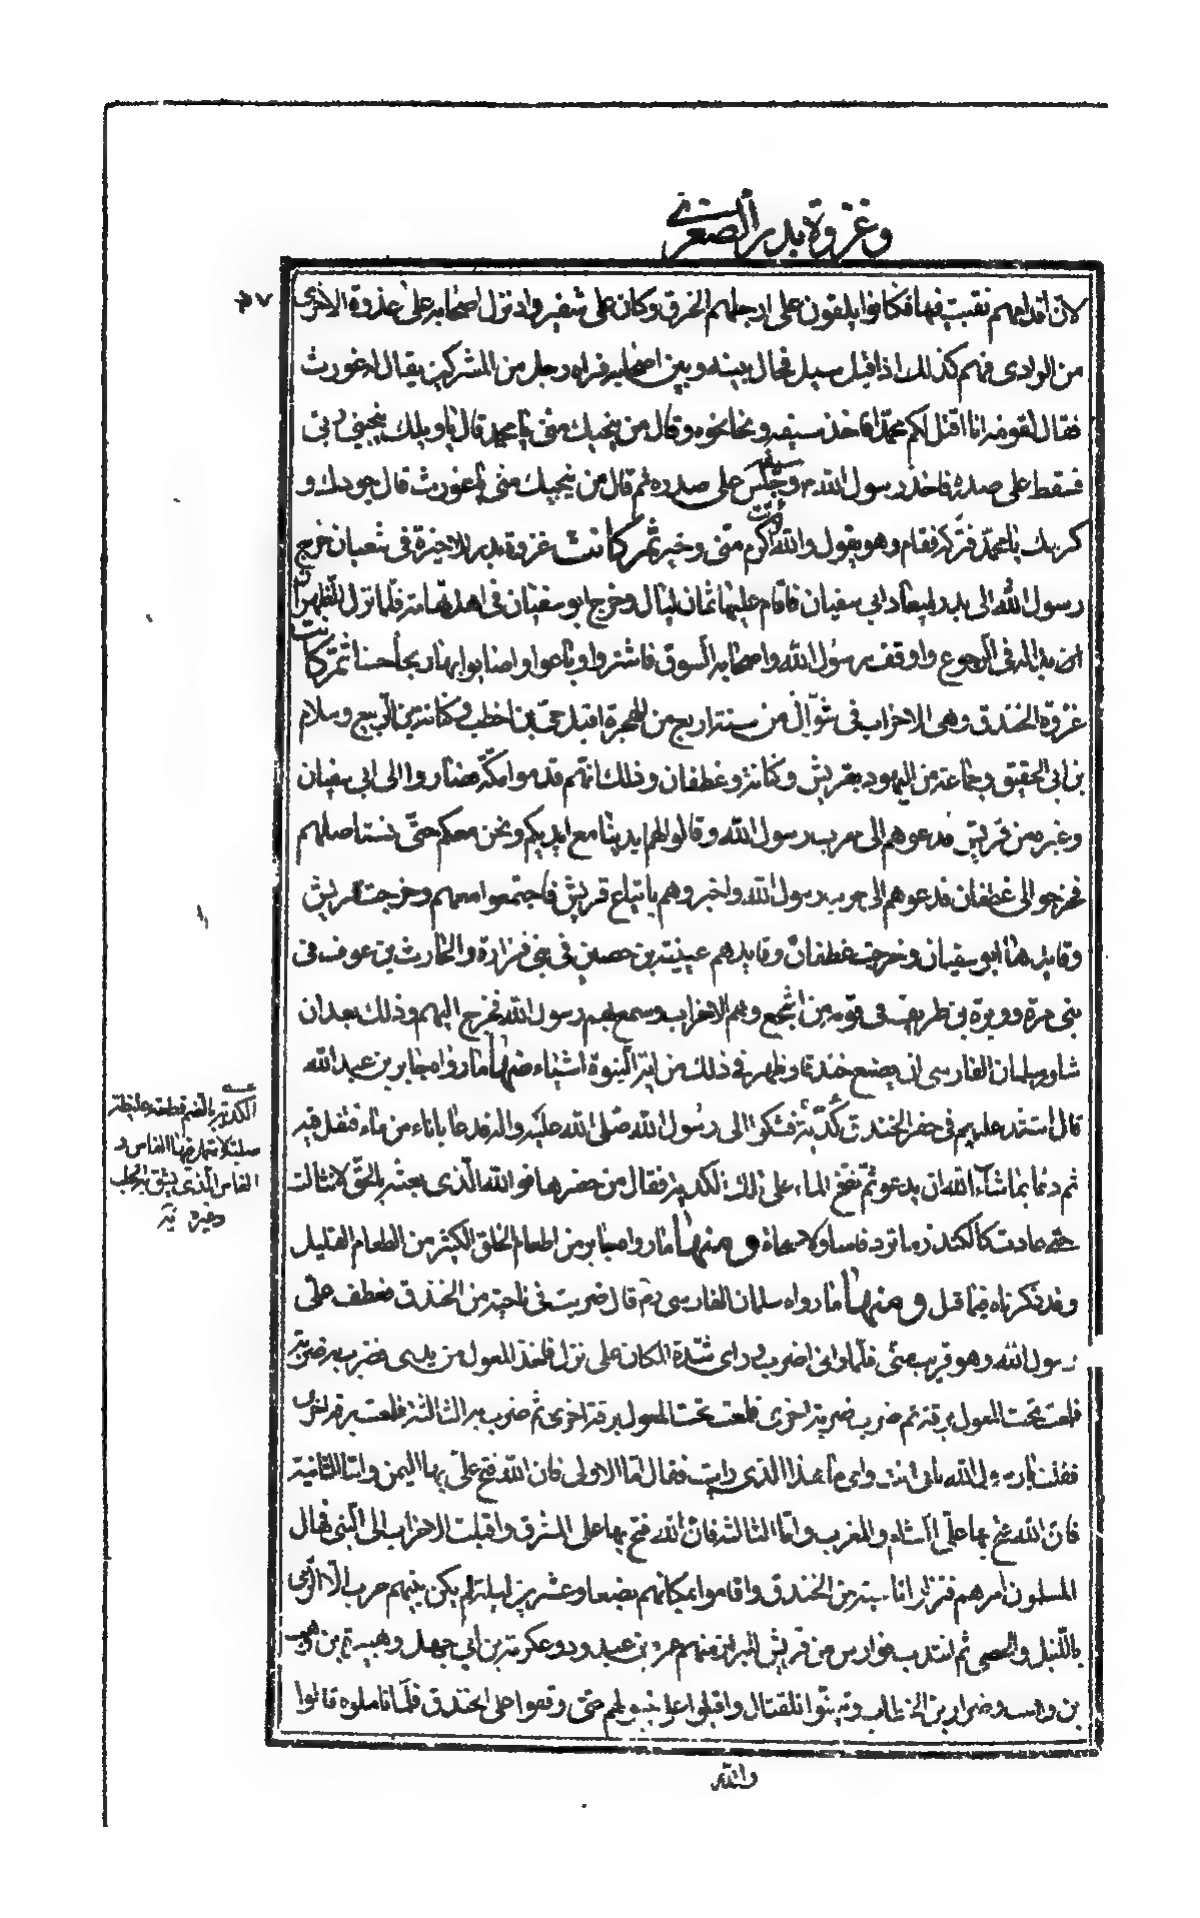 وغزوة بدر الصغرى
٥٧
لان اقدامهم نقبت فيها فكانوا يلفون على ارجلهم الخرق وكان على شفير واد نزل اصحابه على عذوة الاخرى
من الوادى فهم كذلك اذ اقبل سيل فحال بينه وبين اصحابه فراه رجل من المشركين يقال له غورث
فقال لقومه انا اقتل لكم محمدا فاخذ سيفه ونحا نحوه وقال من ينجيك منى يا محمد قال يا ويلك ينجينى ربى
فسقط على صدره فاخذ رسول الله سيفه وجلس على صدره ثم قال من ينجيك منى يا غورث قال جودك و
كرمك يا محمد فتركه فقام وهو يقول والله لانت اكرم منى وخير ثم كانت غزوة بدر الاخيرة فى شعبان خرج
رسول الله الى بدر لميعاد ابى سفيان فاقام عليها ثمان ليال وخرج ابو سفيان فى اهل تهامة فلما نزل الظهران
ثم بدا له فى الرجوع ووافق رسول الله واصحابه السوق فاشتروا وباعوا واصابوا بها ربحا حسنا ثم كانت
غزوة الخندق وهى الاحزاب فى شوال من سنة اربع من الهجرة اقبل حى بن اخطب وكنانة بن الربيع وسلام
بن ابى الحقيق وجماعة من اليهود بقريش وكنانة وغطفان وذلك انهم قدموا مكة فصاروا الى ابى سفيان
وغيره من قريش فدعوهم الى حرب رسول الله وقالوا لهم ايدينا مع ايديكم ونحن معكم حتى نستاصلهم
فخرجوا الى غطفان فدعوهم الى حرب رسول الله واخبروهم باتباع قريش فاجتمعوا معهم وخرجت قريش
وقايدها ابو سفيان وخرجت غطفان وقايدهم عيينة بن حصين فى بنى فزارة والحارث بن عوف فى
بنى مرة ووبرة بن طريف فى قومه من اشجع وهم الاحزاب وسمع بهم رسول الله فخرج اليهم وذلك بعد ان
شاور سلمان الفارسى ان يصنع خندقا وظهر فى ذلك من اية النبوة اشياء منها ما رواه جابر بن عبد الله
قال اشتد عليهم فى حفر الخندق كدية فشكوا الى رسول الله صلى الله عليه واله فدعا باناء من ماء فتفل فيه
ثم دعا بما شاء الله ان يدعو ثم نضح الماء على تلك الكدية فقال من حضرها فو الله الذى بعثه بالحق لانثالت
حتى عادت كالكندر ما ترد فاسا ولا مسحاة ومنها ما رواه جابر من اطعام الخلق الكثير من الطعام القليل
وقد ذكرناه فيما قبل ومنها ما رواه سلمان الفارسى رض قال ضربت فى ناحية من الخندق فعطف على
رسول الله وهو قريب منى فلما رانى اضرب وراى شدة المكان على نزل فاخذ المعول من يدى فضرب به ضربة
فلمعت تحت المعول برقة ثم ضرب ضربة اخرى فلمعت تحت المعول برقة اخرى ثم ضرب به الثالثة فلمعت برقة اخرى
فقلت يا رسول الله بابى انت وامى ما هذا الذى رايت فقال اما الاولى فان الله فتح على بها اليمن واما الثانية
فان الله فتح بها على الشام والمغرب واما الثالثة فان الله فتح بها على المشرق واقبلت الاحزاب الى النبى فهال
المسلمون امرهم فنزلوا ناحية من الخندق واقاموا بمكانهم بضعا وعشرين ليلة لم يكن بينهم حرب الا الرمى
بالنبل والحصى ثم انتدب فوارس من قريش للبراز منهم عمرو بن عبد ود وعكرمة بن ابى جهل وهبيرة بن وهب
وضرار بن الخطاب وتهيئوا للقتال واقبلوا على خيولهم حتى وقفوا على الخندق فلما تاملوه قالوا
والله
الكدية بالضم قطعة غليظة
صلبة لا تعمل فيها الفاس و
الفاس الذى يشق به الحطب
وغيره